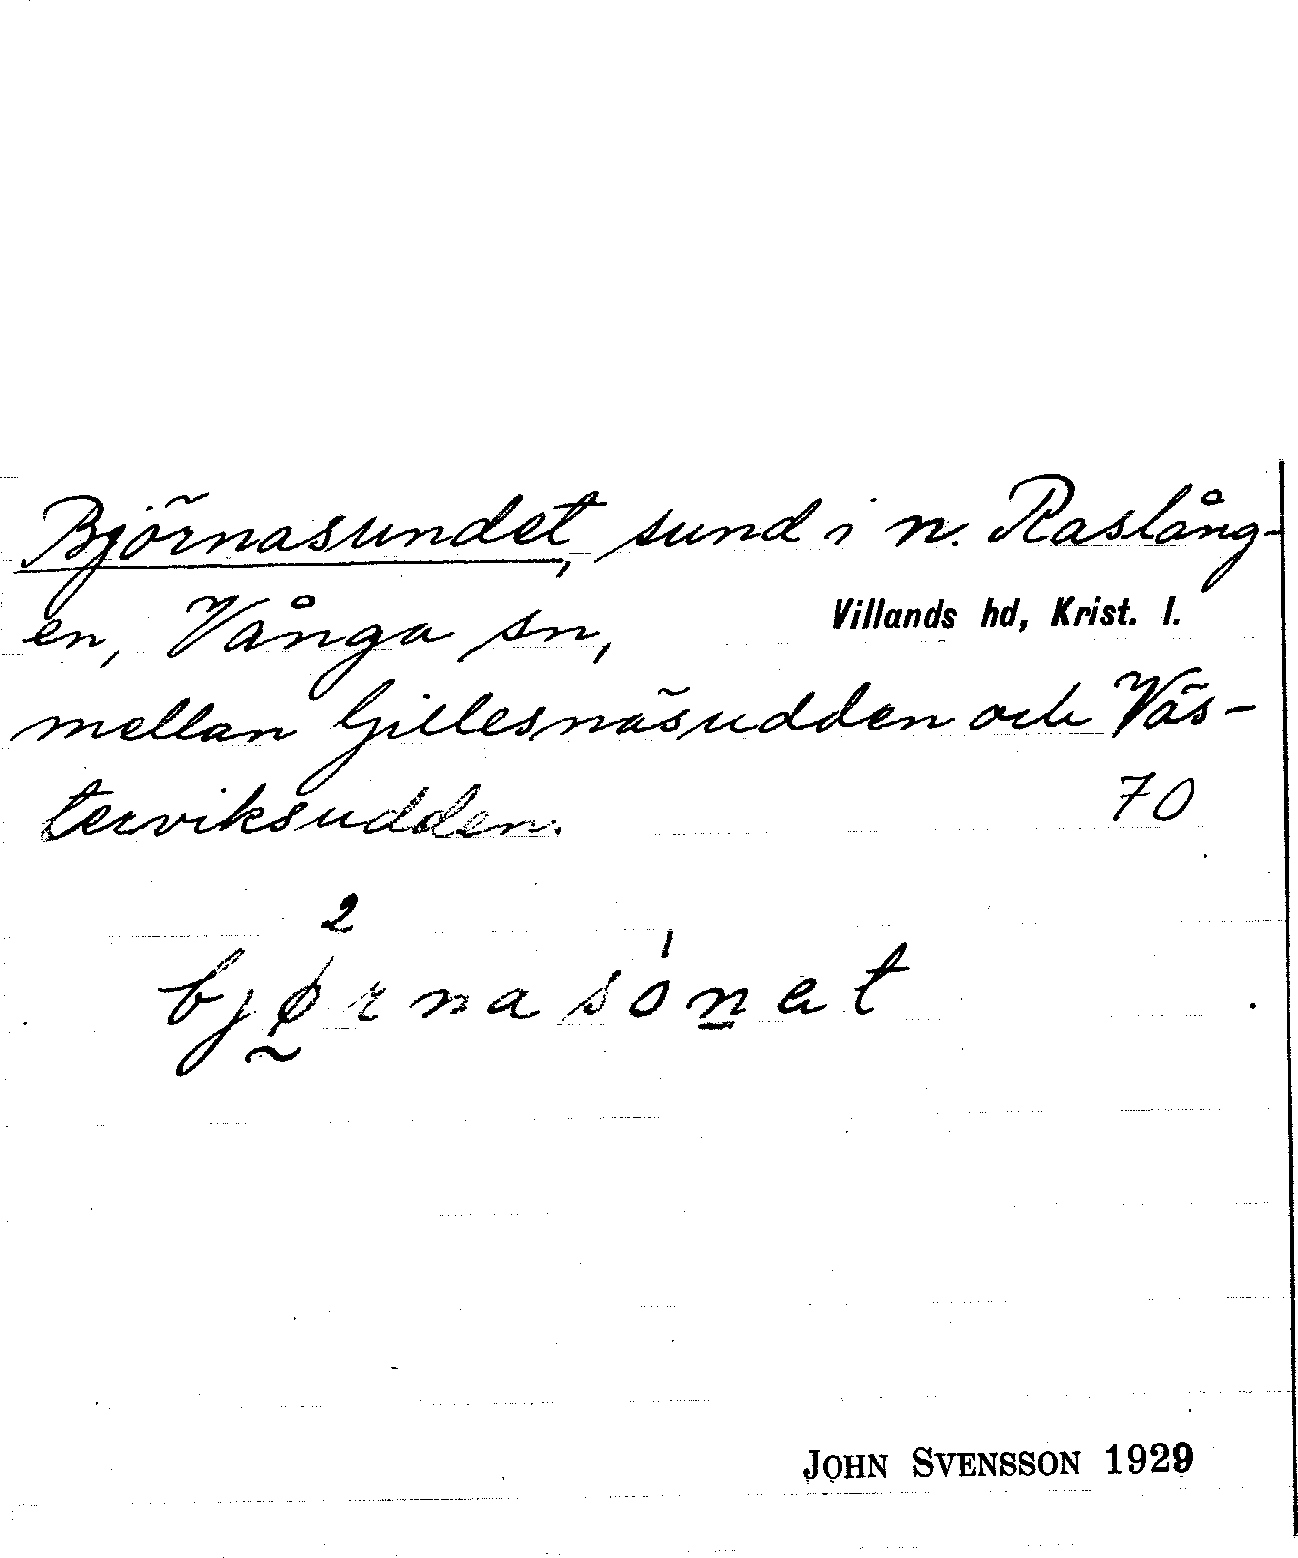 Björnasundet, sund i n. Raslång-
en, Vånga sn, Villands hd, Krist. l.
mellan Gillesnäsudden och Väs-
terviksudden. 70
2 1
bjørnasonat
JOHN SVENSSON 1929